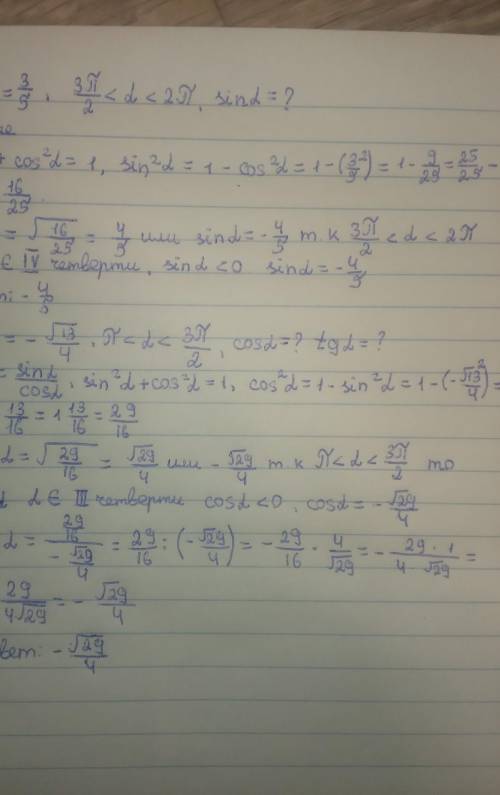 = 3/5, 3π/2 < α < 2π, sinα = ?
+ cos²α = 1, sin²α = 1 - cos²α = 1 - (3/5²) = 1 - 9/25 = 25/25 -
16/25
= √16/25 = 4/5 или sinα = -4/5 т. к 3π/2 < α < 2π
∈ IV четверти, sinα < 0 sinα = -4/5
: - 4/5
= - √13/4, π < α < 3π/2, cosα = ? tgα = ?
= sinα/cosα, sin²α + cos²α = 1, cos²α = 1 - sin²α = 1 - (-√13/4²) =
13/16 = 1 13/16 = 29/16
α = √29/16 = √29/4 или - √29/4 т. к π < α < 3π/2 то
α ∈ III четверти cosα < 0, cosα = - √29/4
α = 29/16 / - √29/4 = 29/16 : (- √29/4) = - 29/16 · 4/√29 = - 29 · 1/4 · √29 =
29/4√29 = - √29/4
вет: - √29/4